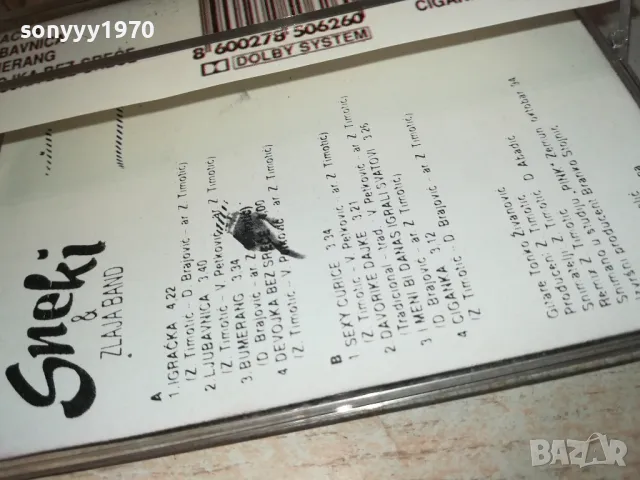 sonyyy1970
BAVNICA
MERANG
JKA BEZ SREĆE
8 600278 506260
DOLBY SYSTEM
CIGAN
Sneki
&
ZLAJA BAND
A
1. IGRAČKA 4,22
(Z. Timotić - D. Brajović - ar Z. Timotić)
2 LJUBAVNICA 3.40
(Z. Timotić - V. Petković ar Z. Timotić)
3 BUMERANG 3.34
(D. Brajović - ar Z. Timotić)
4 DEVOJKA BEZ SREĆE 00
(Z. Timotić - V. Petković ar Z. Timotić)
B
1 SEXY CURICE 3.34
(Z. Timotić - V. Petković - ar Z. Timotić)
2 DAVORIKE DAJKE 3.21
(Tradicional - trad. V. Petković - ar Z. Timotić)
3 I MENI BI DANAS IGRALI SVATOVI 3.26
(D. Brajović - ar Z. Timotić)
4 CIGANKA 3.12
(Z. Timotić - D. Brajović - ar Z. Timotić)
Gitare Tonko Živanović
Producenti Z. Timotić D. Abadić
Programatelj Timotić
Snimio Z. Timotić u studiju PINK, Zemun oktobar 94
Remiano u studiju
Izvršni producent Branko Stojić
BAZAR